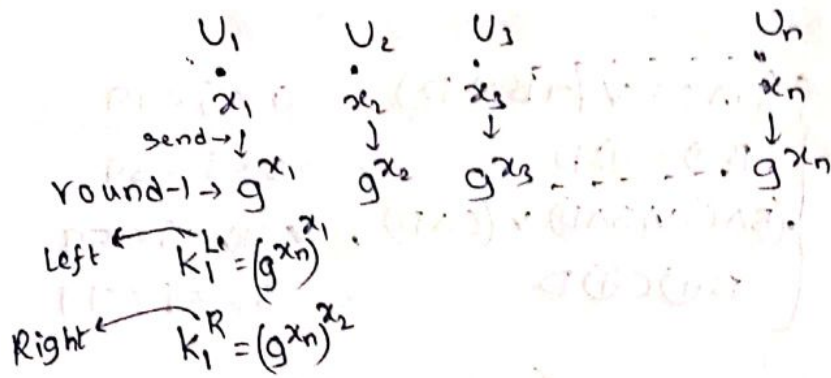 U₁ U₂ U₃ Uₙ
x₁ x₂ x₃ xₙ
send→ ↓ ↓ ↓ ↓
round-1→ g^x₁ g^x₂ g^x₃ ------ g^xₙ
Left ← K₁^Le = (g^xₙ)^x₁
Right ← K₁^R = (g^xₙ)^x₂